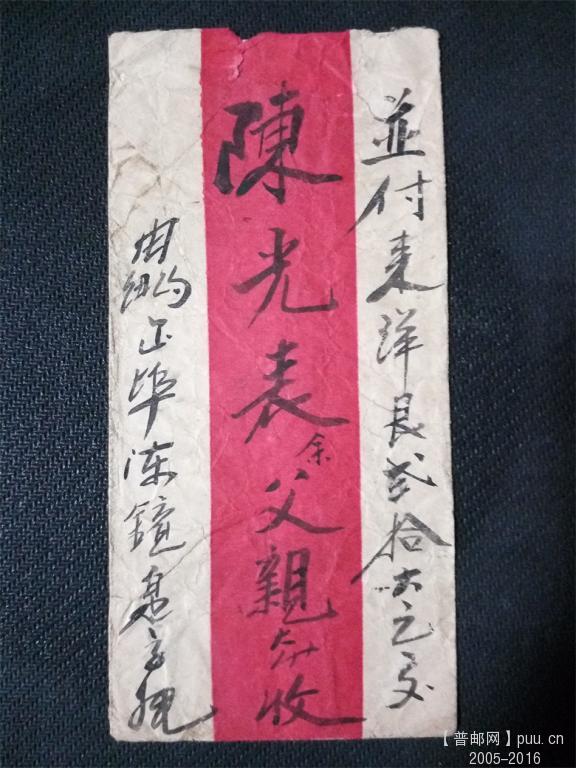 並付來洋艮弍拾大元交
陳光表余父親大人收
由紐約正埠陳鏡
【普邮网】puu.cn
2005-2016